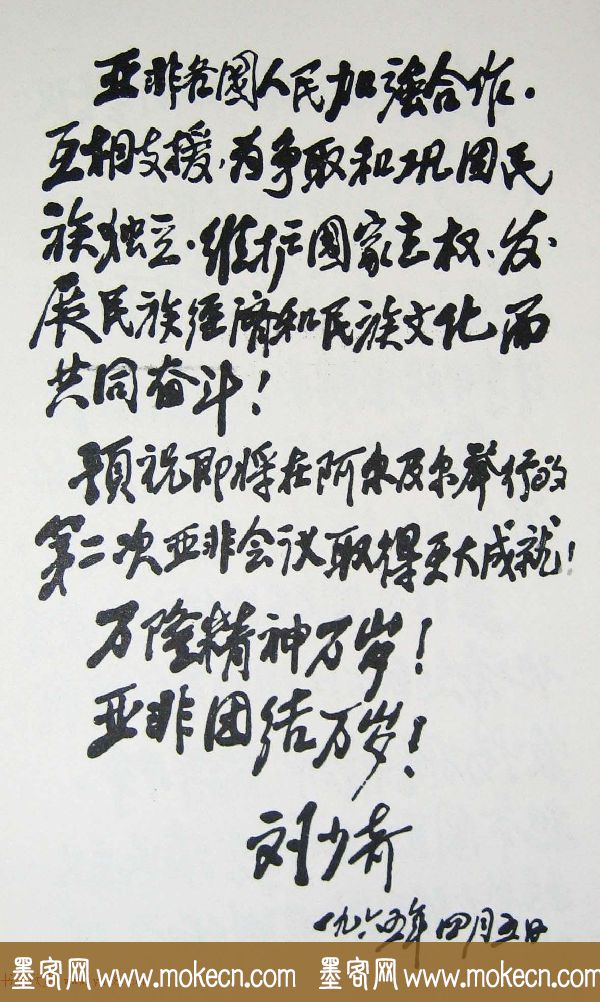 亚非各國人民加強合作、
互相支援，为争取和巩固民
族独立、维护國家主权、发
展民族经济和民族文化而
共同奋斗！
预祝即将在阿尔及尔举行的
第二次亚非会议取得更大成就！
万隆精神万岁！
亚非团结万岁！
刘少奇
一九六五年四月五日
墨客网 www.mokecn.com 墨客网 www.mokecn.com